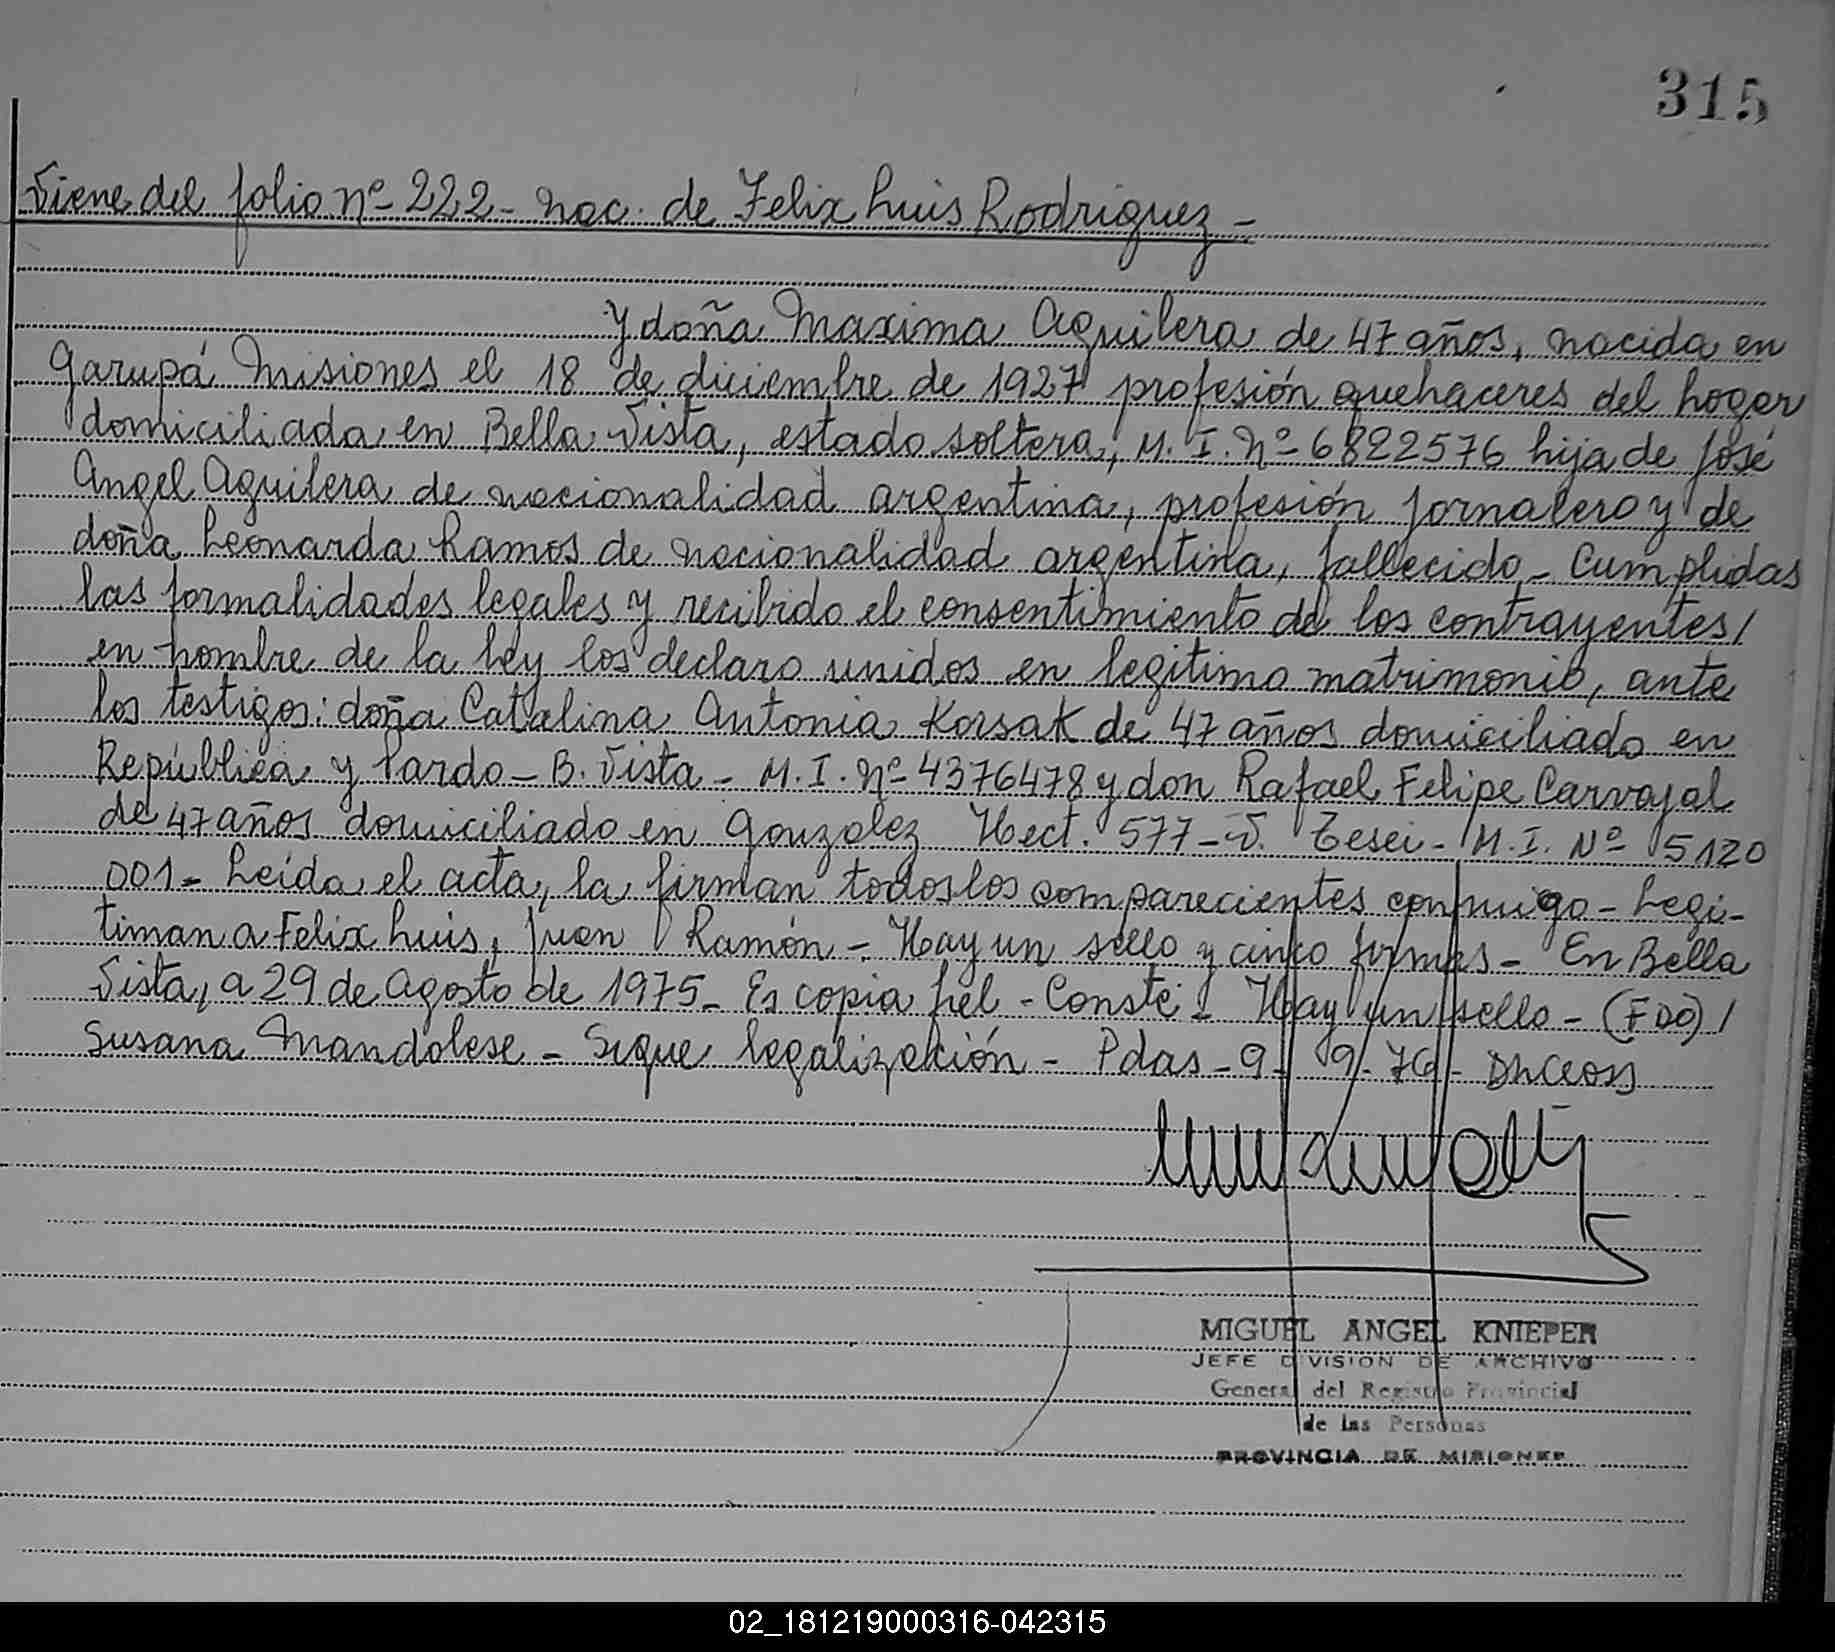 315
Viene del folio nº 222 - nac. de Felix Luis Rodriguez -
Y doña Maxima Aguilera de 47 años, nacida en
Garupá Misiones el 18 de diciembre de 1927 profesión quehaceres del hogar
domiciliada en Bella Vista, estado soltera, M. I. Nº 6822576 hija de José
Angel Aguilera de nacionalidad argentina, profesión jornalero y de
doña Leonarda Ramos de nacionalidad argentina, fallecido - Cumplidas
las formalidades legales y recibido el consentimiento de los contrayentes/
en nombre de la ley los declaro unidos en legítimo matrimonio, ante
los testigos: doña Catalina Antonia Korsak de 47 años domiciliado en
República y Pardo - B. Vista - M. I. Nº 4376478 y don Rafael Felipe Carvajal
de 47 años domiciliado en Gonzalez Hect. 577 - V. Tesei - M. I. Nº 5120
001 - Leída el acta, la firman todos los comparecientes conmigo - Legi-
timan a Felix Luis, Juan Ramón - Hay un sello y cinco firmas - En Bella
Vista, a 29 de Agosto de 1975 - Es copia fiel - Conste - Hay un sello - (FDO) /
Susana Mandolese - Sigue legalización - Pdas - 9 - 9 - 76 -
MIGUEL ANGEL KNIEPER
JEFE DIVISION DE ARCHIVO
General del Registro Provincial
de las Personas
PROVINCIA DE MISIONES
02_181219000316-042315